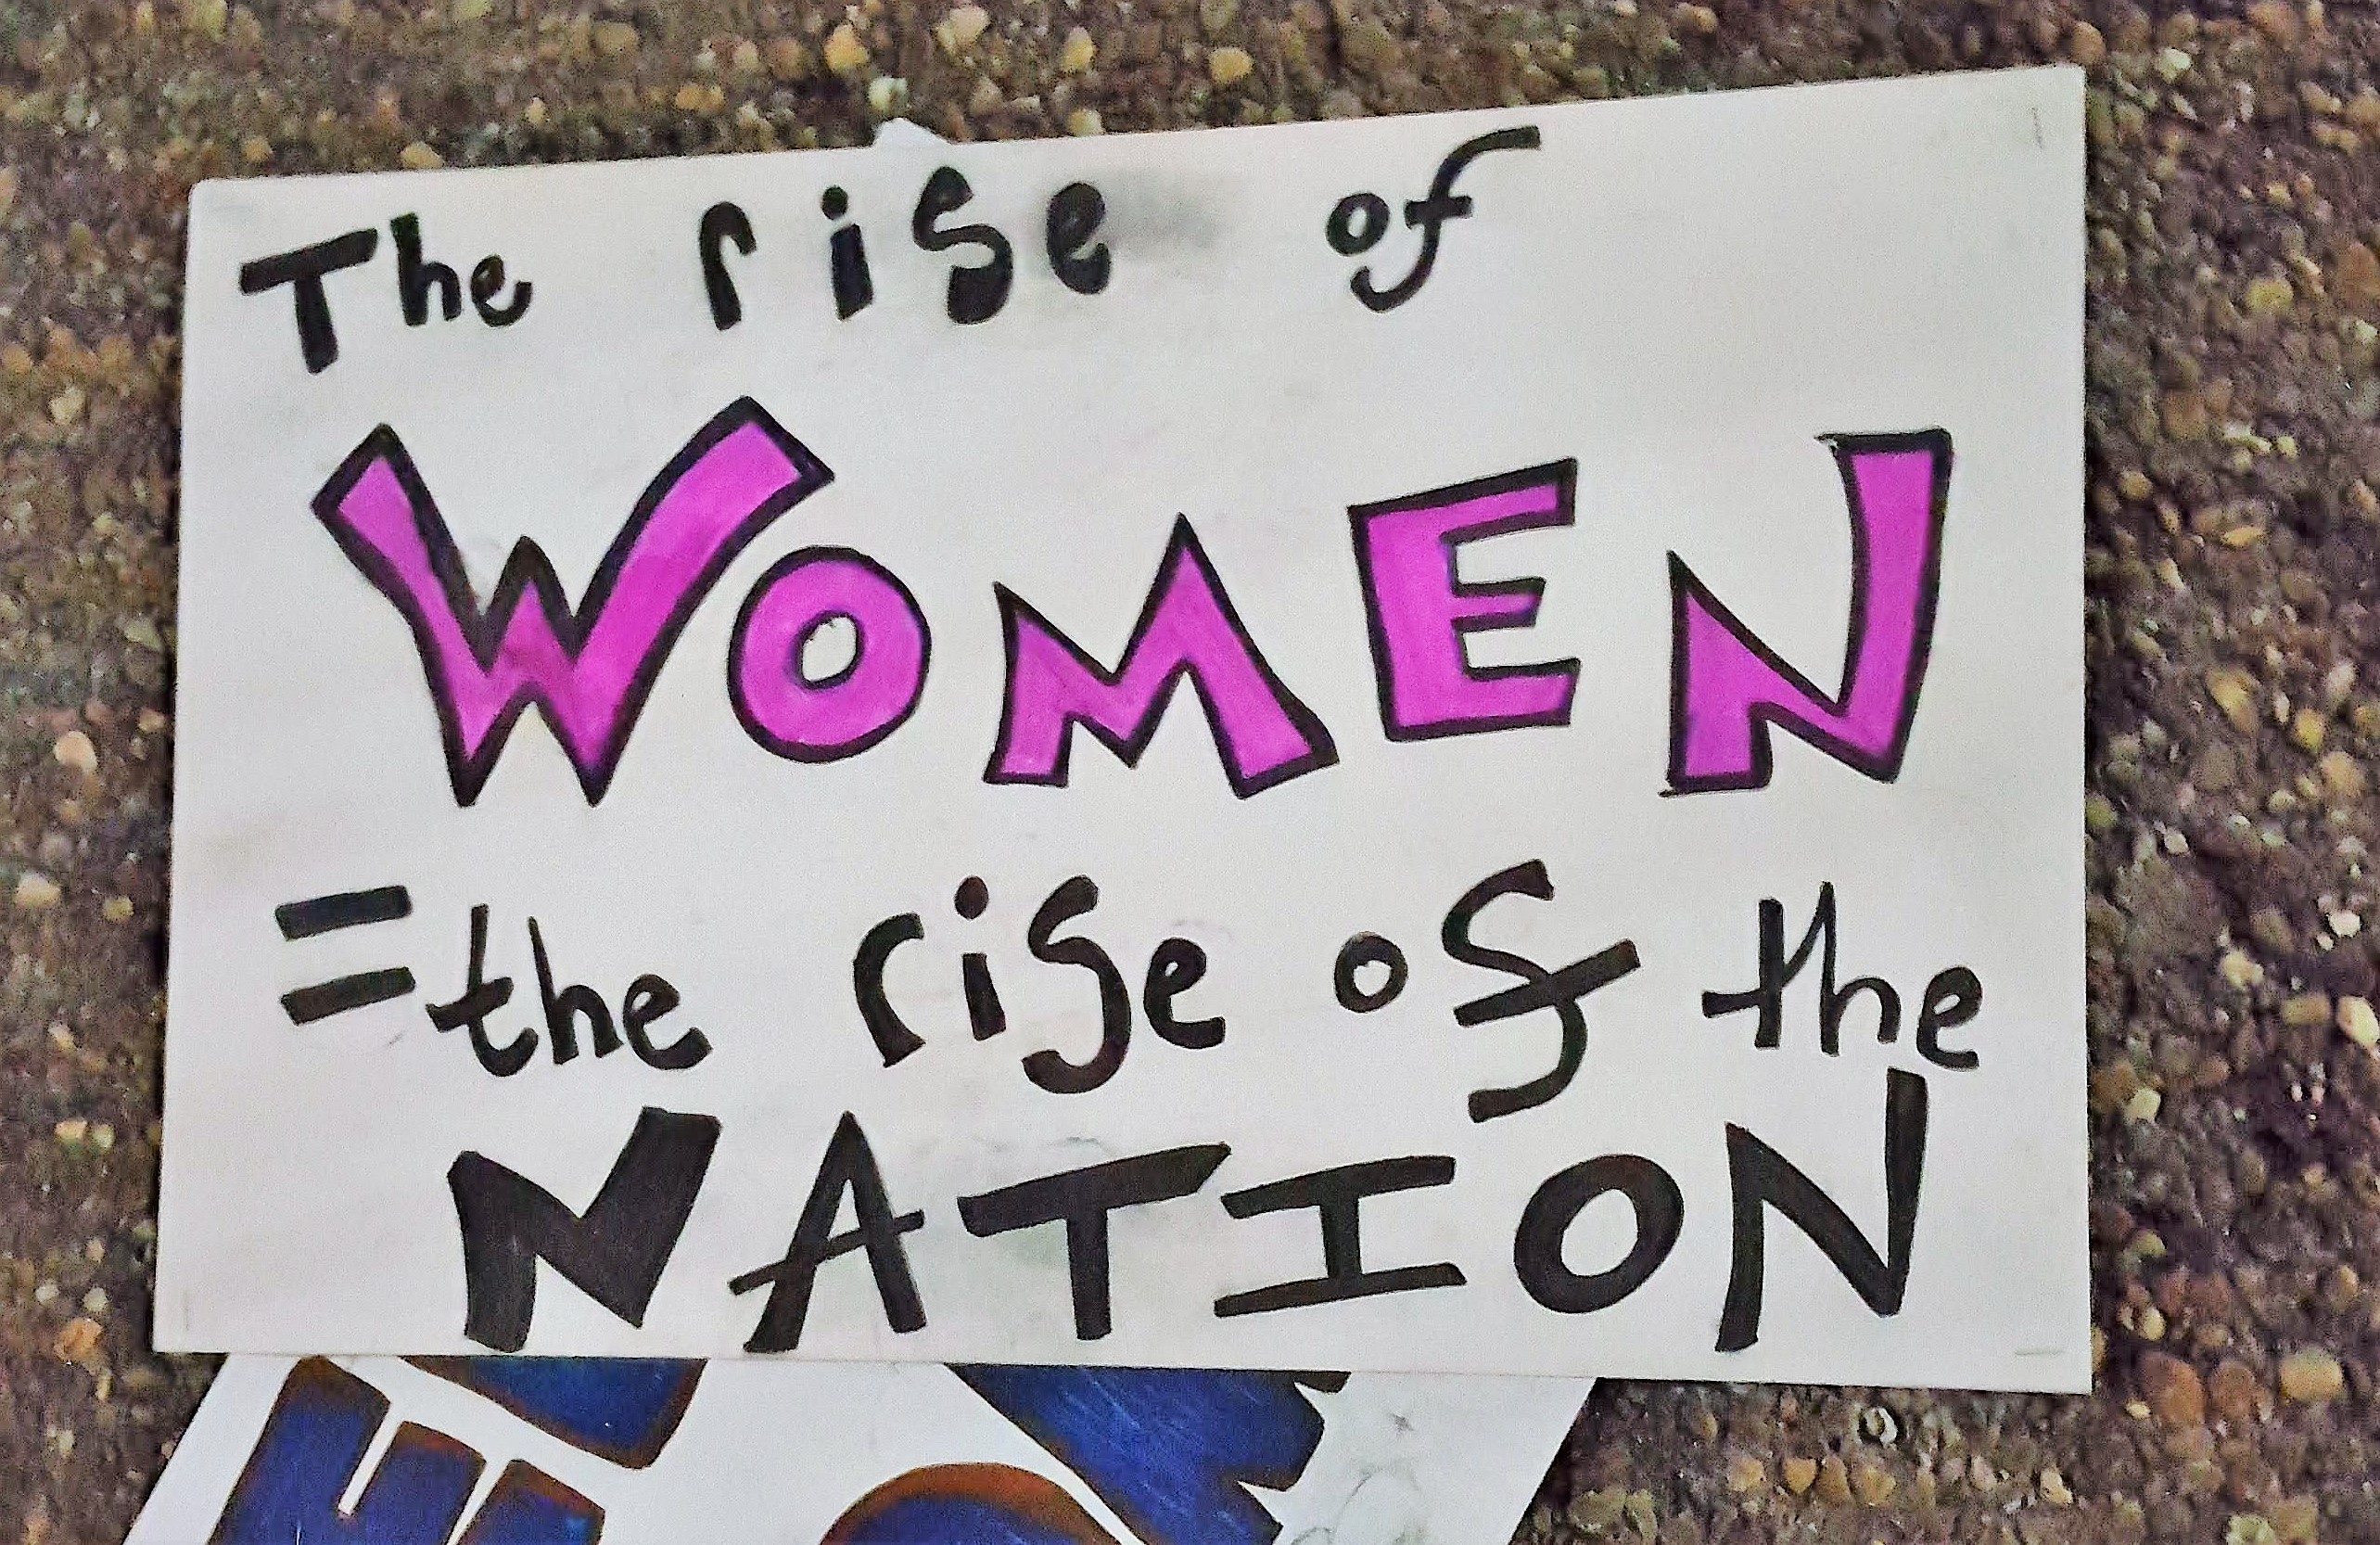 The rise of
WOMEN
= the rise of the
NATION